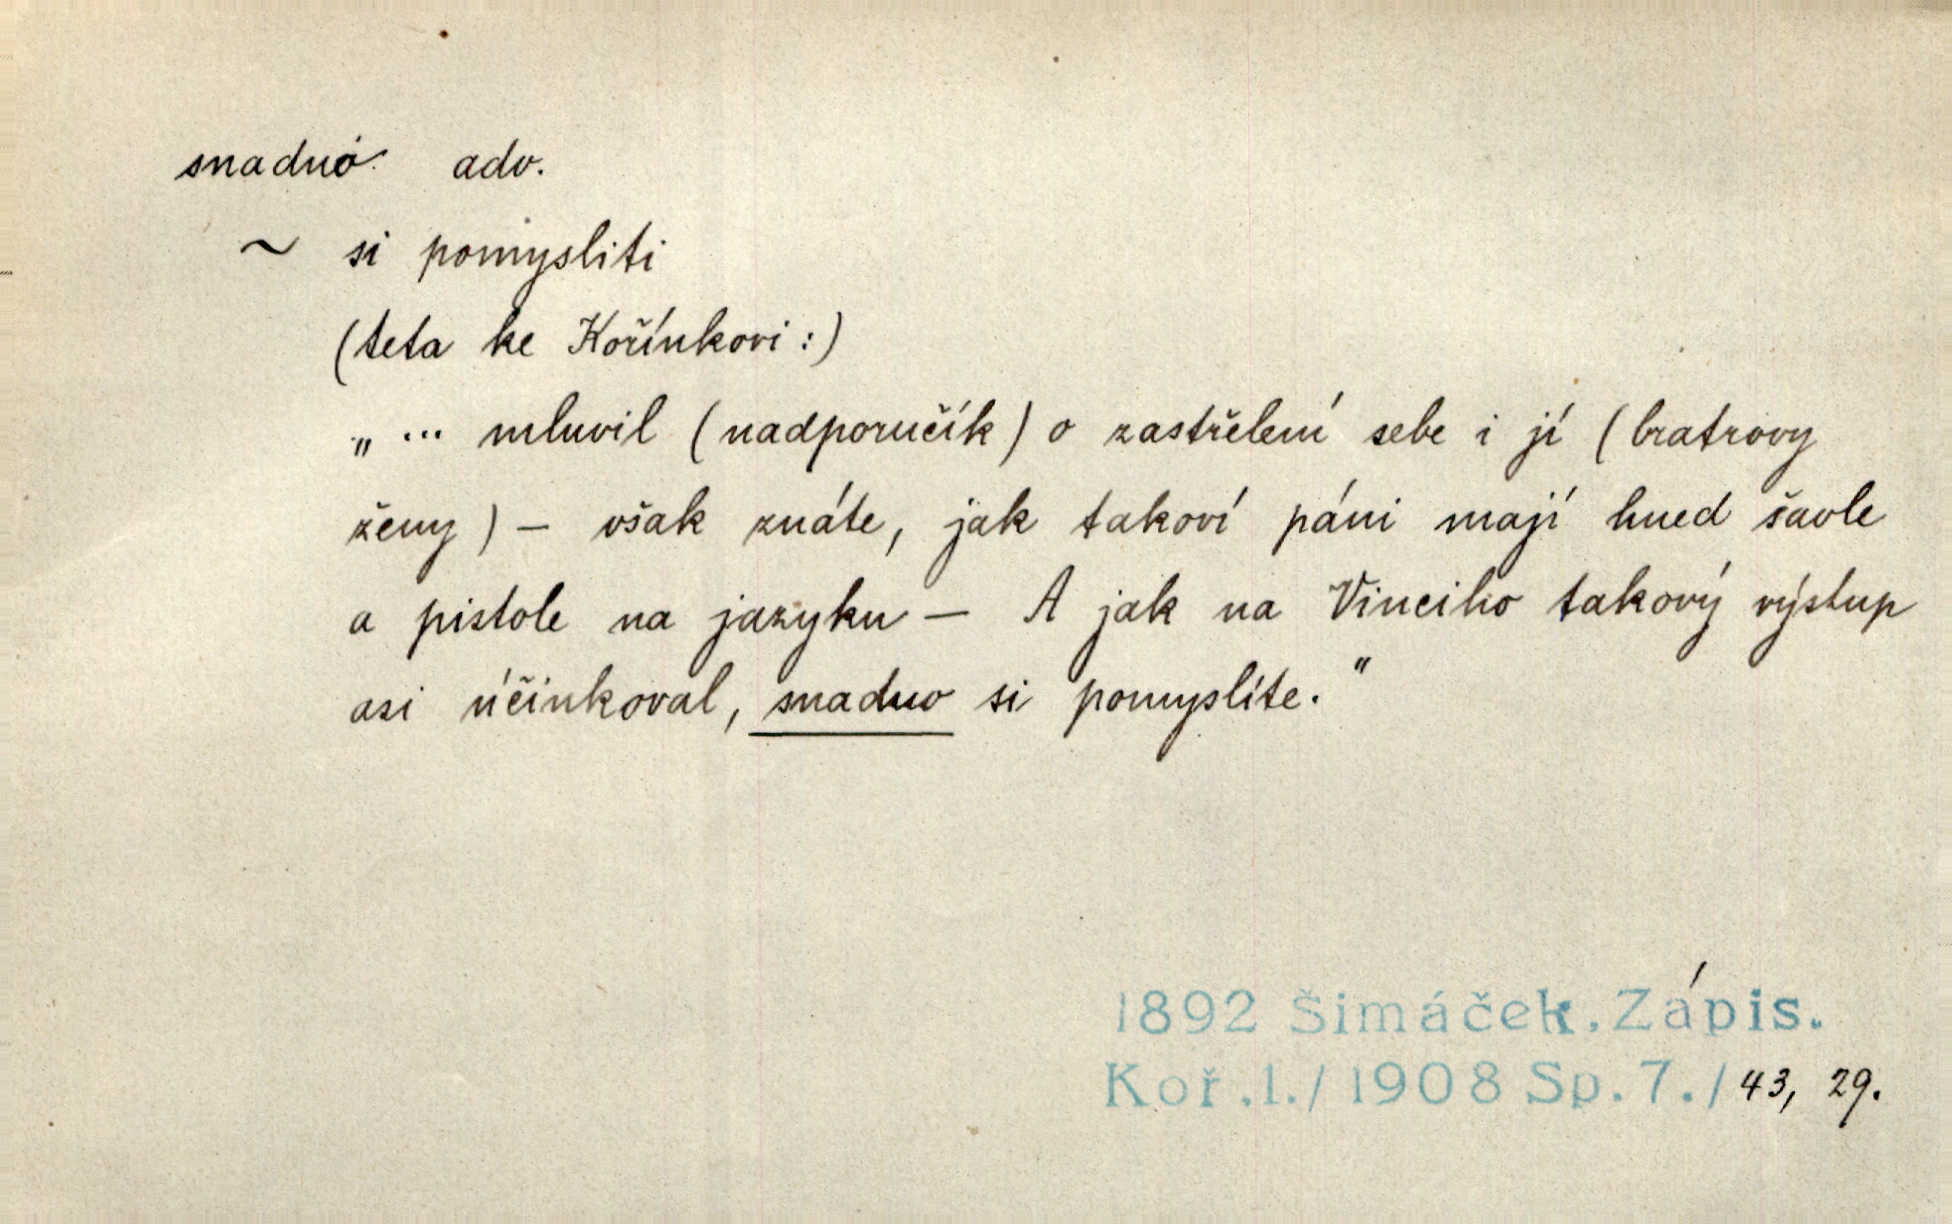 snadno adv.
~ si pomysliti
(teta ke Kořínkovi:)
„ ... mluvil (nadporučík) o zastřelení sebe i jí (bratrovy
ženy) – však znáte, jak takoví páni mají hned šavle
a pistole na jazyku – A jak na Vinciho takový výstup
asi účinkoval, snadno si pomyslíte."
1892 Šimáček. Zápis.
Koř.1./1908 Sp.7./43, 29.